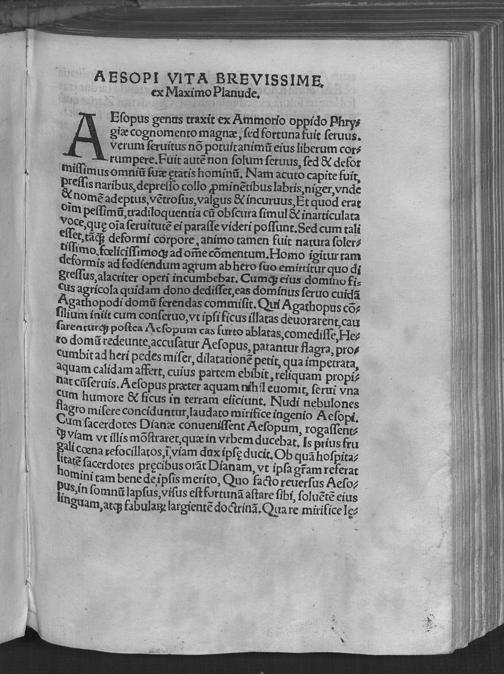 AESOPI VITA BREVISSIME,
ex Maximo Planude.
AEsopus genus traxit ex Ammorio oppido Phry-
giæ cognomento magnæ, sed fortuna fuit seruus.
verum seruitus nõ potuit animũ eius liberum cor-
rumpere. Fuit autẽ non solum seruus, sed & defor
missimus omniũ suæ ętatis hominũ. Nam acuto capite fuit,
pressis naribus, depresso collo ꝓminẽtibus labris, niger, vnde
& nomẽ adeptus, vẽtrosus, valgus & incuruus, Et quod erat
oim pessimũ, tradiloquentia cũ obscura simul & inarticulata
voce, que oĩa seruitutẽ ei parasse videri possunt. Sed cum tali
esset, tãq̃ deformi corpore, animo tamen fuit natura soler-
tissimo, fœlicissimoq; ad om̃e cõmentum. Homo igitur tam
deformis ad fodiendum agrum ab hero suo emittitur quo di
gressus, alacriter operi incumbebat. Cumq; eius domino fi-
cus agricola quidam dono dedisset, eas dominus seruo cuidã
Agathopodi domũ ferendas commisit. Qui Agathopus cõ-
silium iniit cum conseruo, vt ipsi ficus illatas deuorarent, cau
sarenturq; postea Aesopum eas furto ablatas, comedisse, He-
ro domũ redeunte, accusatur Aesopus, parantur flagra, pro-
cumbit ad heri pedes miser, dilationẽ petit, qua impetrata,
aquam calidam affert, cuius partem ebibit, reliquam propi-
nat cũseruis. Aesopus præter aquam nihil euomit, serui vna
cum humore & ficus in terram eiiciunt. Nudi nebulones
flagro misere conciduntur, laudato mirifice ingenio Aesopi.
Cum sacerdotes Dianæ conuenissent Aesopum, rogassent-
q; viam vt illis mõstraret, quæ in vrbem ducebat. Is prius fru
gali cœna refocillatos, ĩ viam dux ipsę ducit. Ob quã hospita-
litatẽ sacerdotes pręcibus orãt Dianam, vt ipsa gr̃am referat
homini tam bene de ipsis merito, Quo facto reuersus Aeso-
pus, in somnũ lapsus, visus est fortunã astare sibi, soluẽtẽ eius
linguam, atq; fabularũ largientẽ doctrinã. Qua re mirifice lę-